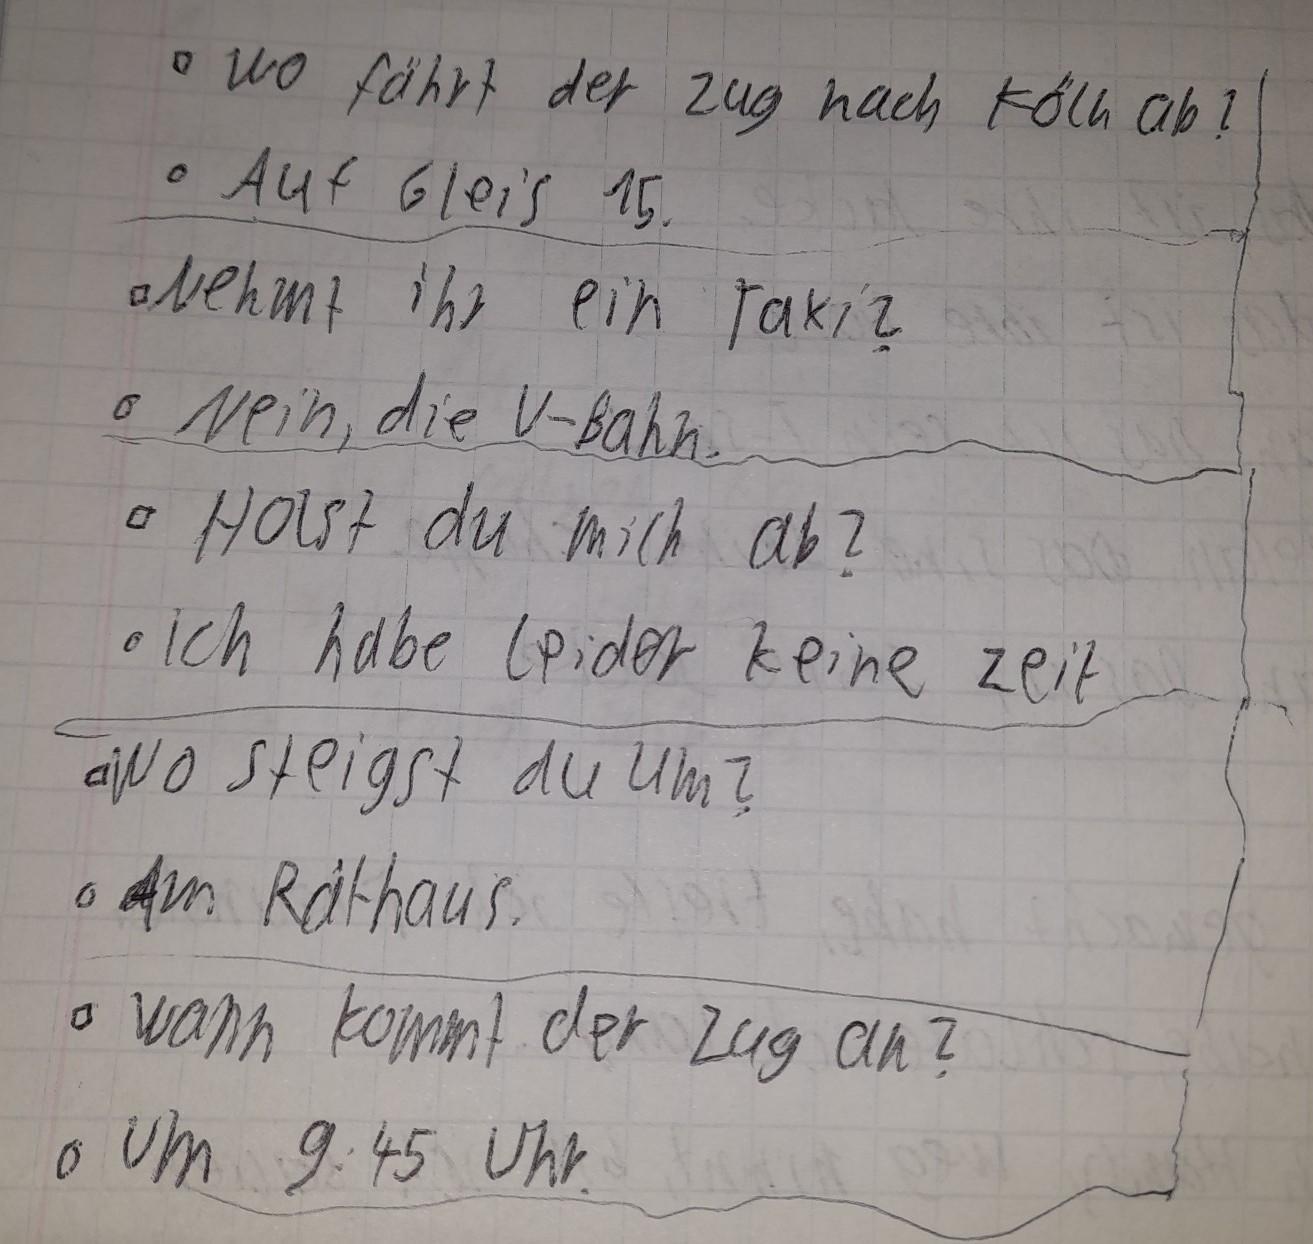 wo fährt der Zug nach Köln ab?
Auf Gleis 15.
Nehmt ihr ein Taki?
Nein, die U-Bahn.
Holst du mich ab?
ich habe leider keine zeit
wo steigst du um?
Am Rathaus.
wann kommt der Zug an?
Um 9:45 Uhr.